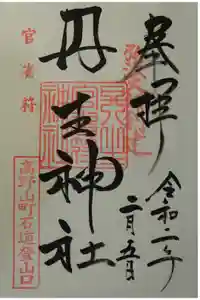 奉拝
令和二年
二月五日
丹生神社
官省符
高野山町石道登山口